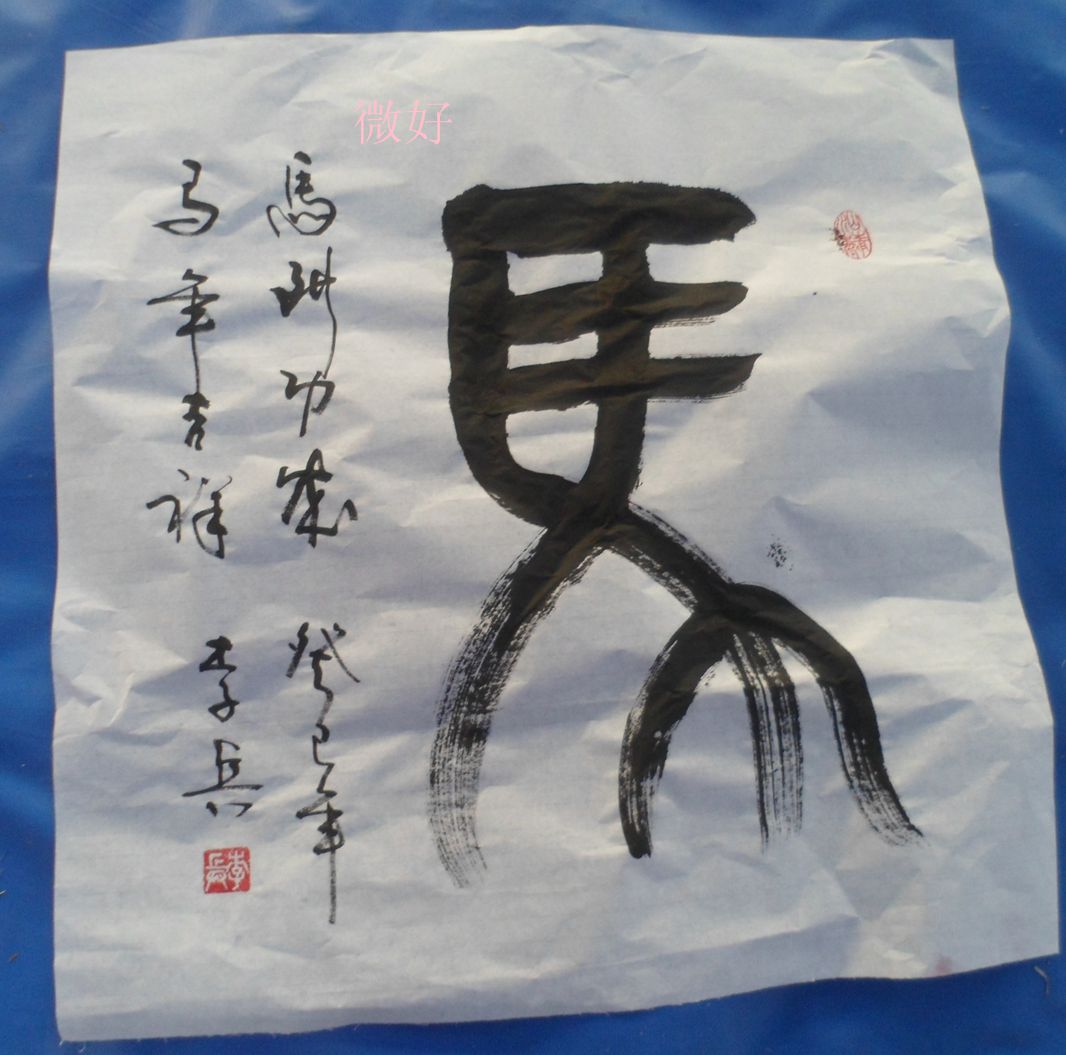 微好
馬
馬到功成 癸巳年
马年吉祥 李兵
李兵